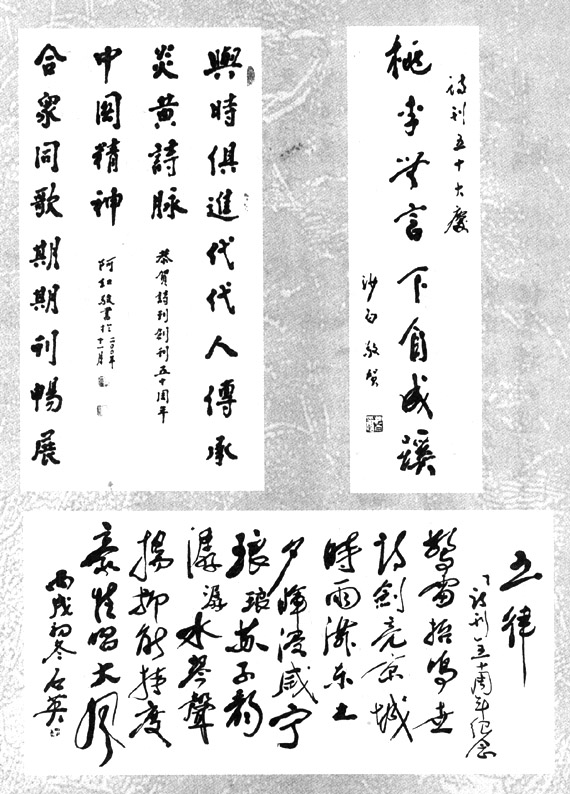 詩刊五十大慶
桃李無言下自成蹊
沙白敬賀
與時俱進代代人傳承
炎黄詩脉
恭賀詩刊創刊五十周年
合衆同歌期期刊暢展
中國精神
阿紅敬書於
十一月
五律
「詩刊」五十周年纪念
驚雷招鳴世
詩劍亮京城
時雨東土
夕暉浸咸宁
琅琅苏子韵
潺潺水琴聲
揚抑能持度
豪情唱大風
丙戌初冬石英